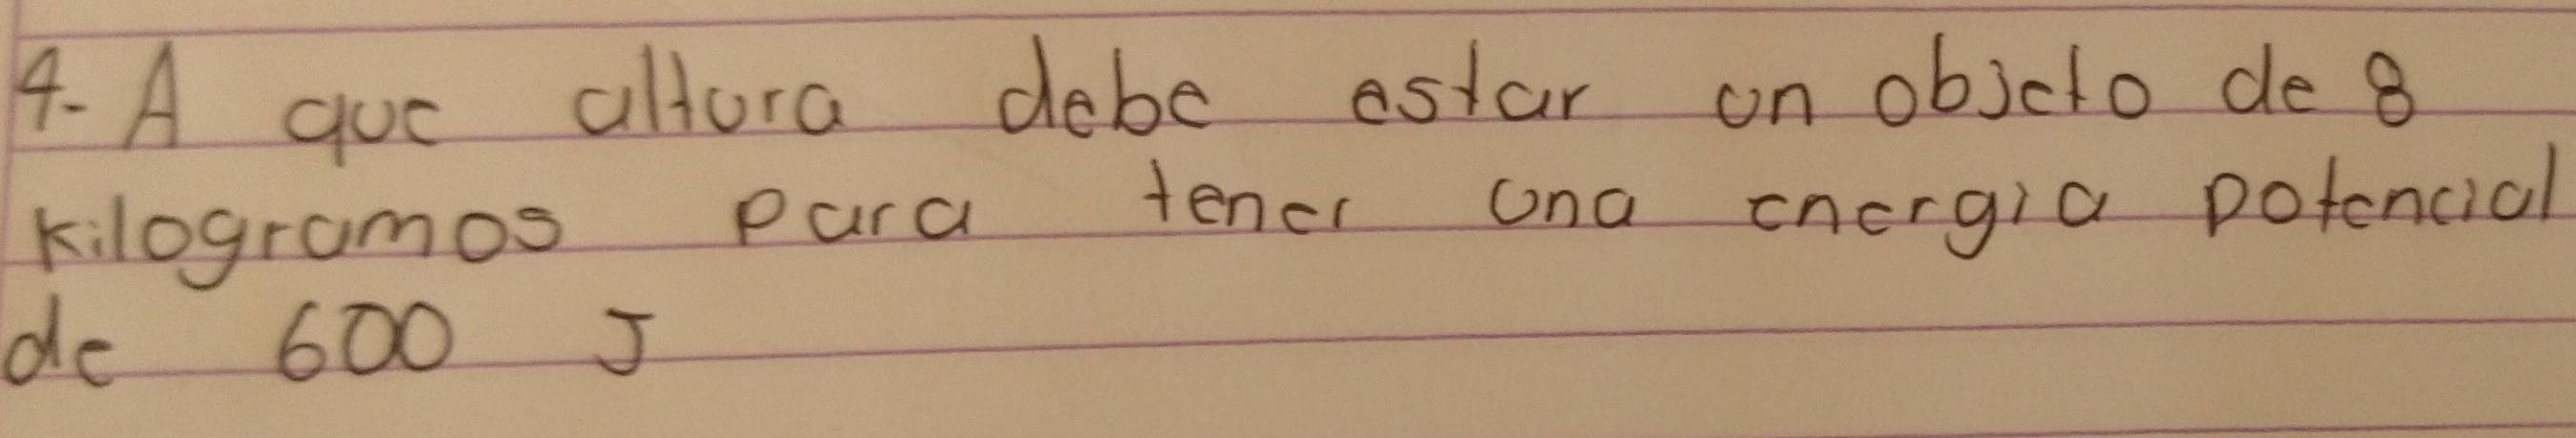 4. A que altura debe estar un objeto de 8
kilogramos para tener una energia potencial
de 600 J